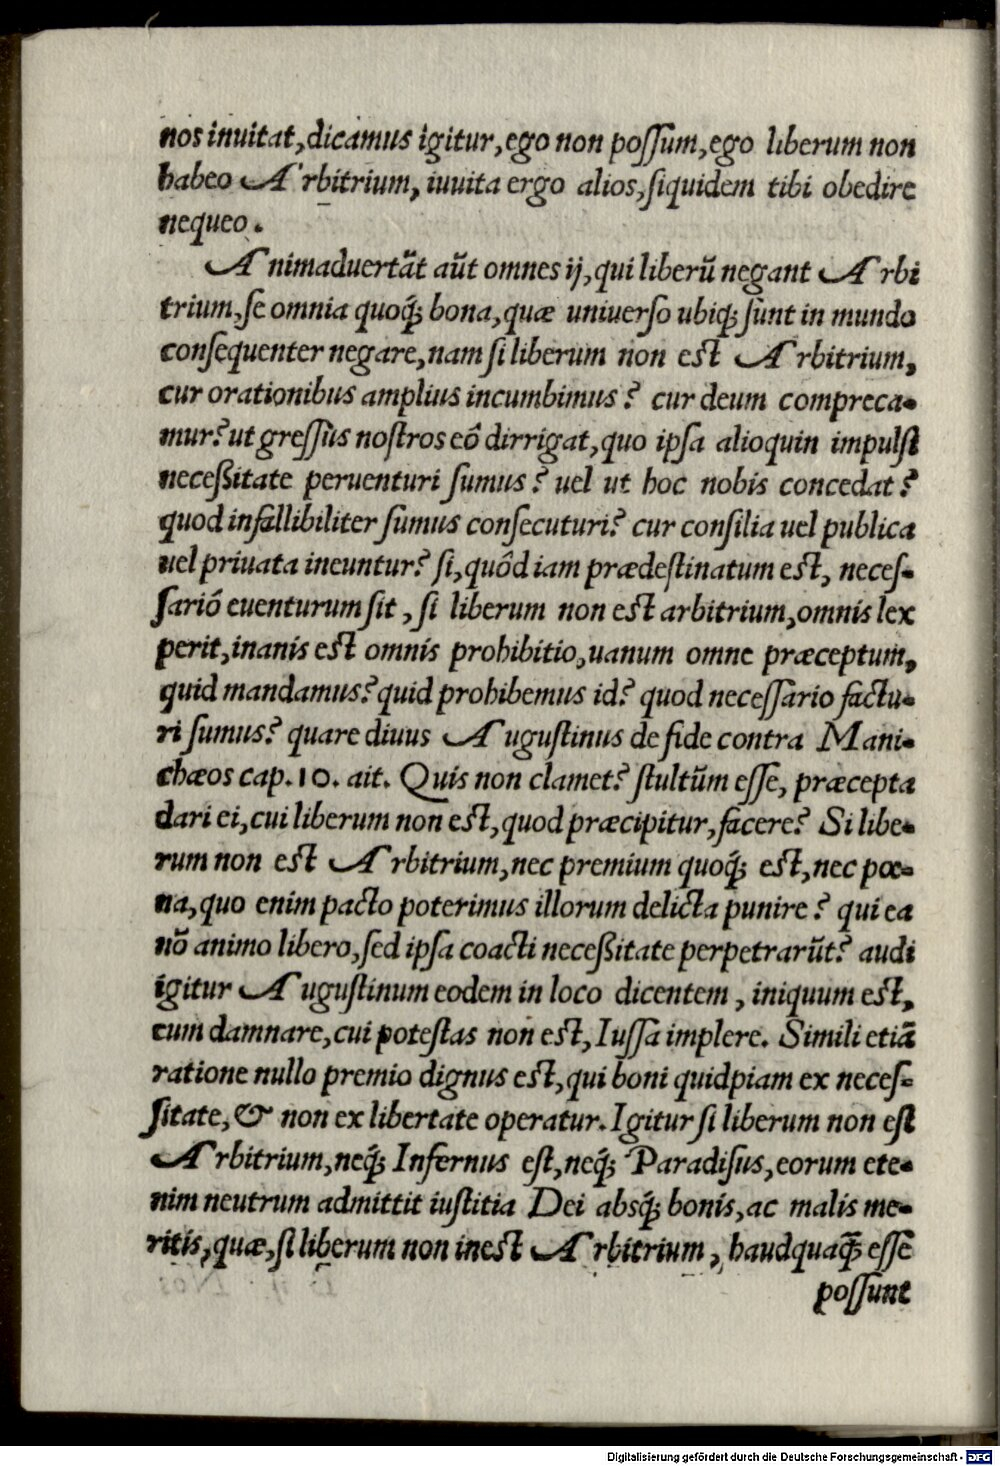 nos inuitat, dicamus igitur, ego non poſſum, ego liberum non
habeo Arbitrium, iuuita ergo alios, ſiquidem tibi obedire
nequeo.
Animaduertãt aũt omnes ij, qui liberũ negant Arbi
trium, ſe omnia quoq́; bona, quæ uniuerſo ubiq; ſunt in mundo
conſequenter negare, nam ſi liberum non eſt Arbitrium,
cur orationibus amplius incumbimus? cur deum compreca-
mur? ut greſſus noſtros eô dirrigat, quo ipſa alioquin impulſi
neceßitate peruenturi ſumus? uel ut hoc nobis concedat?
quod infallibiliter ſumus conſecuturi? cur conſilia uel publica
uel priuata ineuntur? ſi, quôd iam prædeſtinatum eſt, neceſ-
ſariô euenturum ſit, ſi liberum non eſt arbitrium, omnis lex
perit, inanis eſt omnis prohibitio, uanum omne præceptum,
quid mandamus? quid prohibemus id? quod neceſſario factu-
ri ſumus? quare diuus Auguſtinus de fide contra Mani-
chæos cap. 10. ait. Quis non clamet? ſtultũm eſſe, præcepta
dari ei, cui liberum non eſt, quod præcipitur, facere? Si libe-
rum non eſt Arbitrium, nec premium quoq́; eſt, nec pœ-
na, quo enim pacto poterimus illorum delicta punire? qui ea
nõ animo libero, ſed ipſa coacti neceßitate perpetrarũt? audi
igitur Auguſtinum eodem in loco dicentem, iniquum eſt,
eum damnare, cui poteſtas non eſt, Iuſſa implere. Simili etiã
ratione nullo premio dignus eſt, qui boni quidpiam ex neceſ-
ſitate, & non ex libertate operatur. Igitur ſi liberum non eſt
Arbitrium, neq́; Infernus eſt, neq́; Paradiſus, eorum ete-
nim neutrum admittit iuſtitia Dei absq́; bonis, ac malis me-
ritis, quæ, ſi liberum non ineſt Arbitrium, haudquaq̃; eſſe
poſſunt
Digitalisierung gefördert durch die Deutsche Forschungsgemeinschaft - DFG